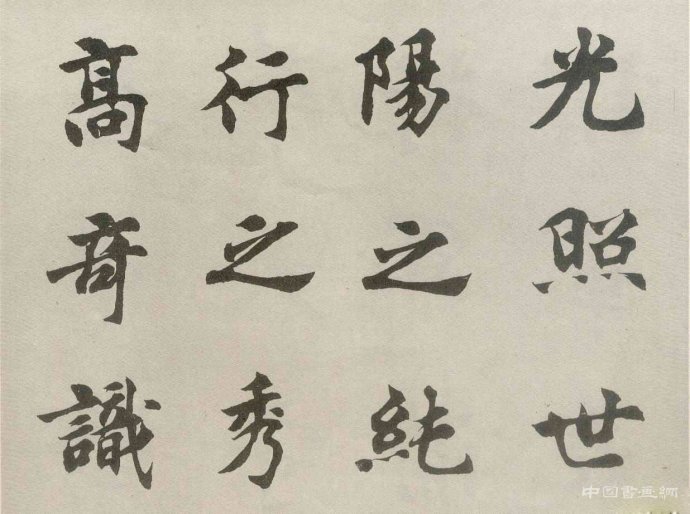 光照世
陽之純
行之秀
高奇識
中国書画網